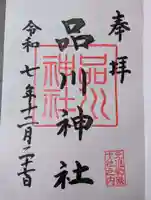 奉拝
品川神社
品川神社
令和七年十二月二十一日